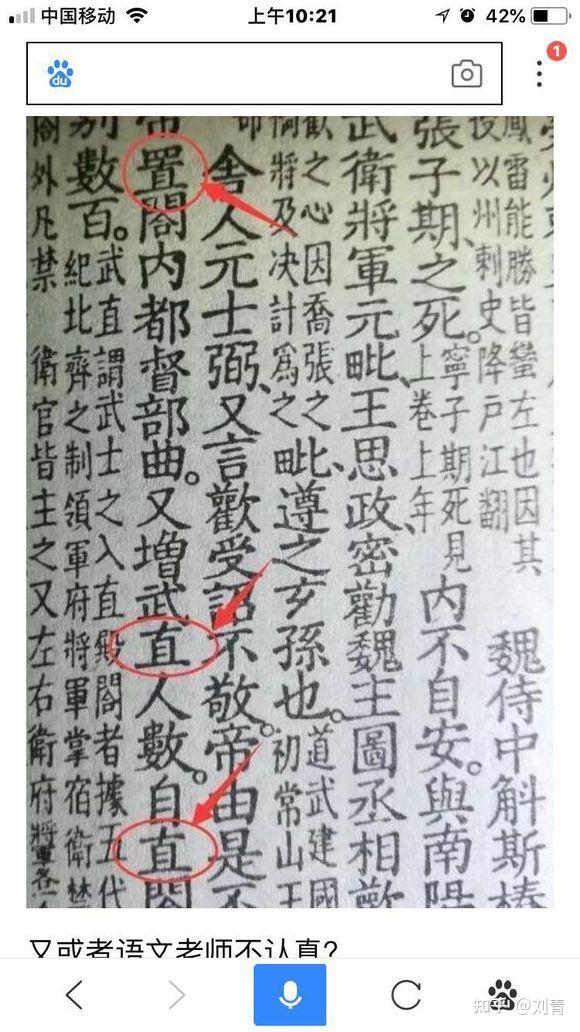 中国移动
上午10:21
42%
1
鳳雷能勝皆蠻左也因其
役以州刺史降戶江翻
魏侍中斛斯椿
張子期之死。
寧子期死見
上卷上年
內不自安。與南陽
武衛將軍元毗、王思政、密勸魏主圖丞相歡
歡之心因喬張之
將及决計爲之
毗、遵之玄孫也。
道武建國
初常山王
舍人元士弼、又言歡受詔不敬。帝由是不
帝置閤內都督部曲。又增武直人數。自直閤
別數百。
武直謂武士之入直殿閤者據五代
紀北齊之制領軍府將軍掌宿衛禁
閤外凡禁衛官皆主之又左右衛府將軍各
又或者语文老师不认真?
知乎 @刘青